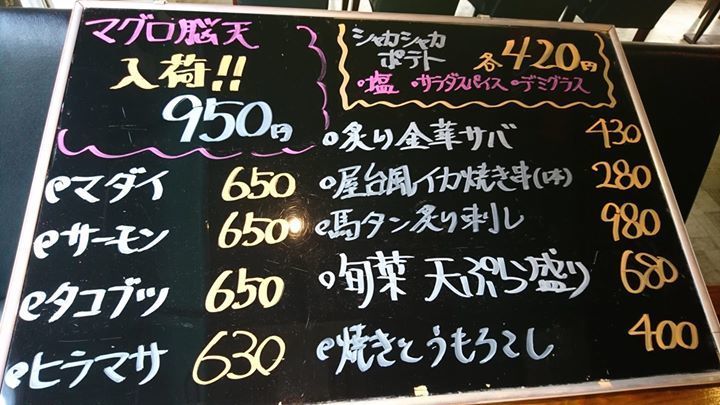 マグロ脳天
入荷!!
950円
マダイ 650
サーモン 650
タコブツ 650
ヒラマサ 630
シャカシャカ
ポテト 各420円
・塩 ・サラダスパイス ・デミグラス
炙り金華サバ 430
屋台風イカ焼き串(1本) 280
馬タン炙り刺し 980
旬菜 天ぷら盛り 680
焼きとうもろこし 400